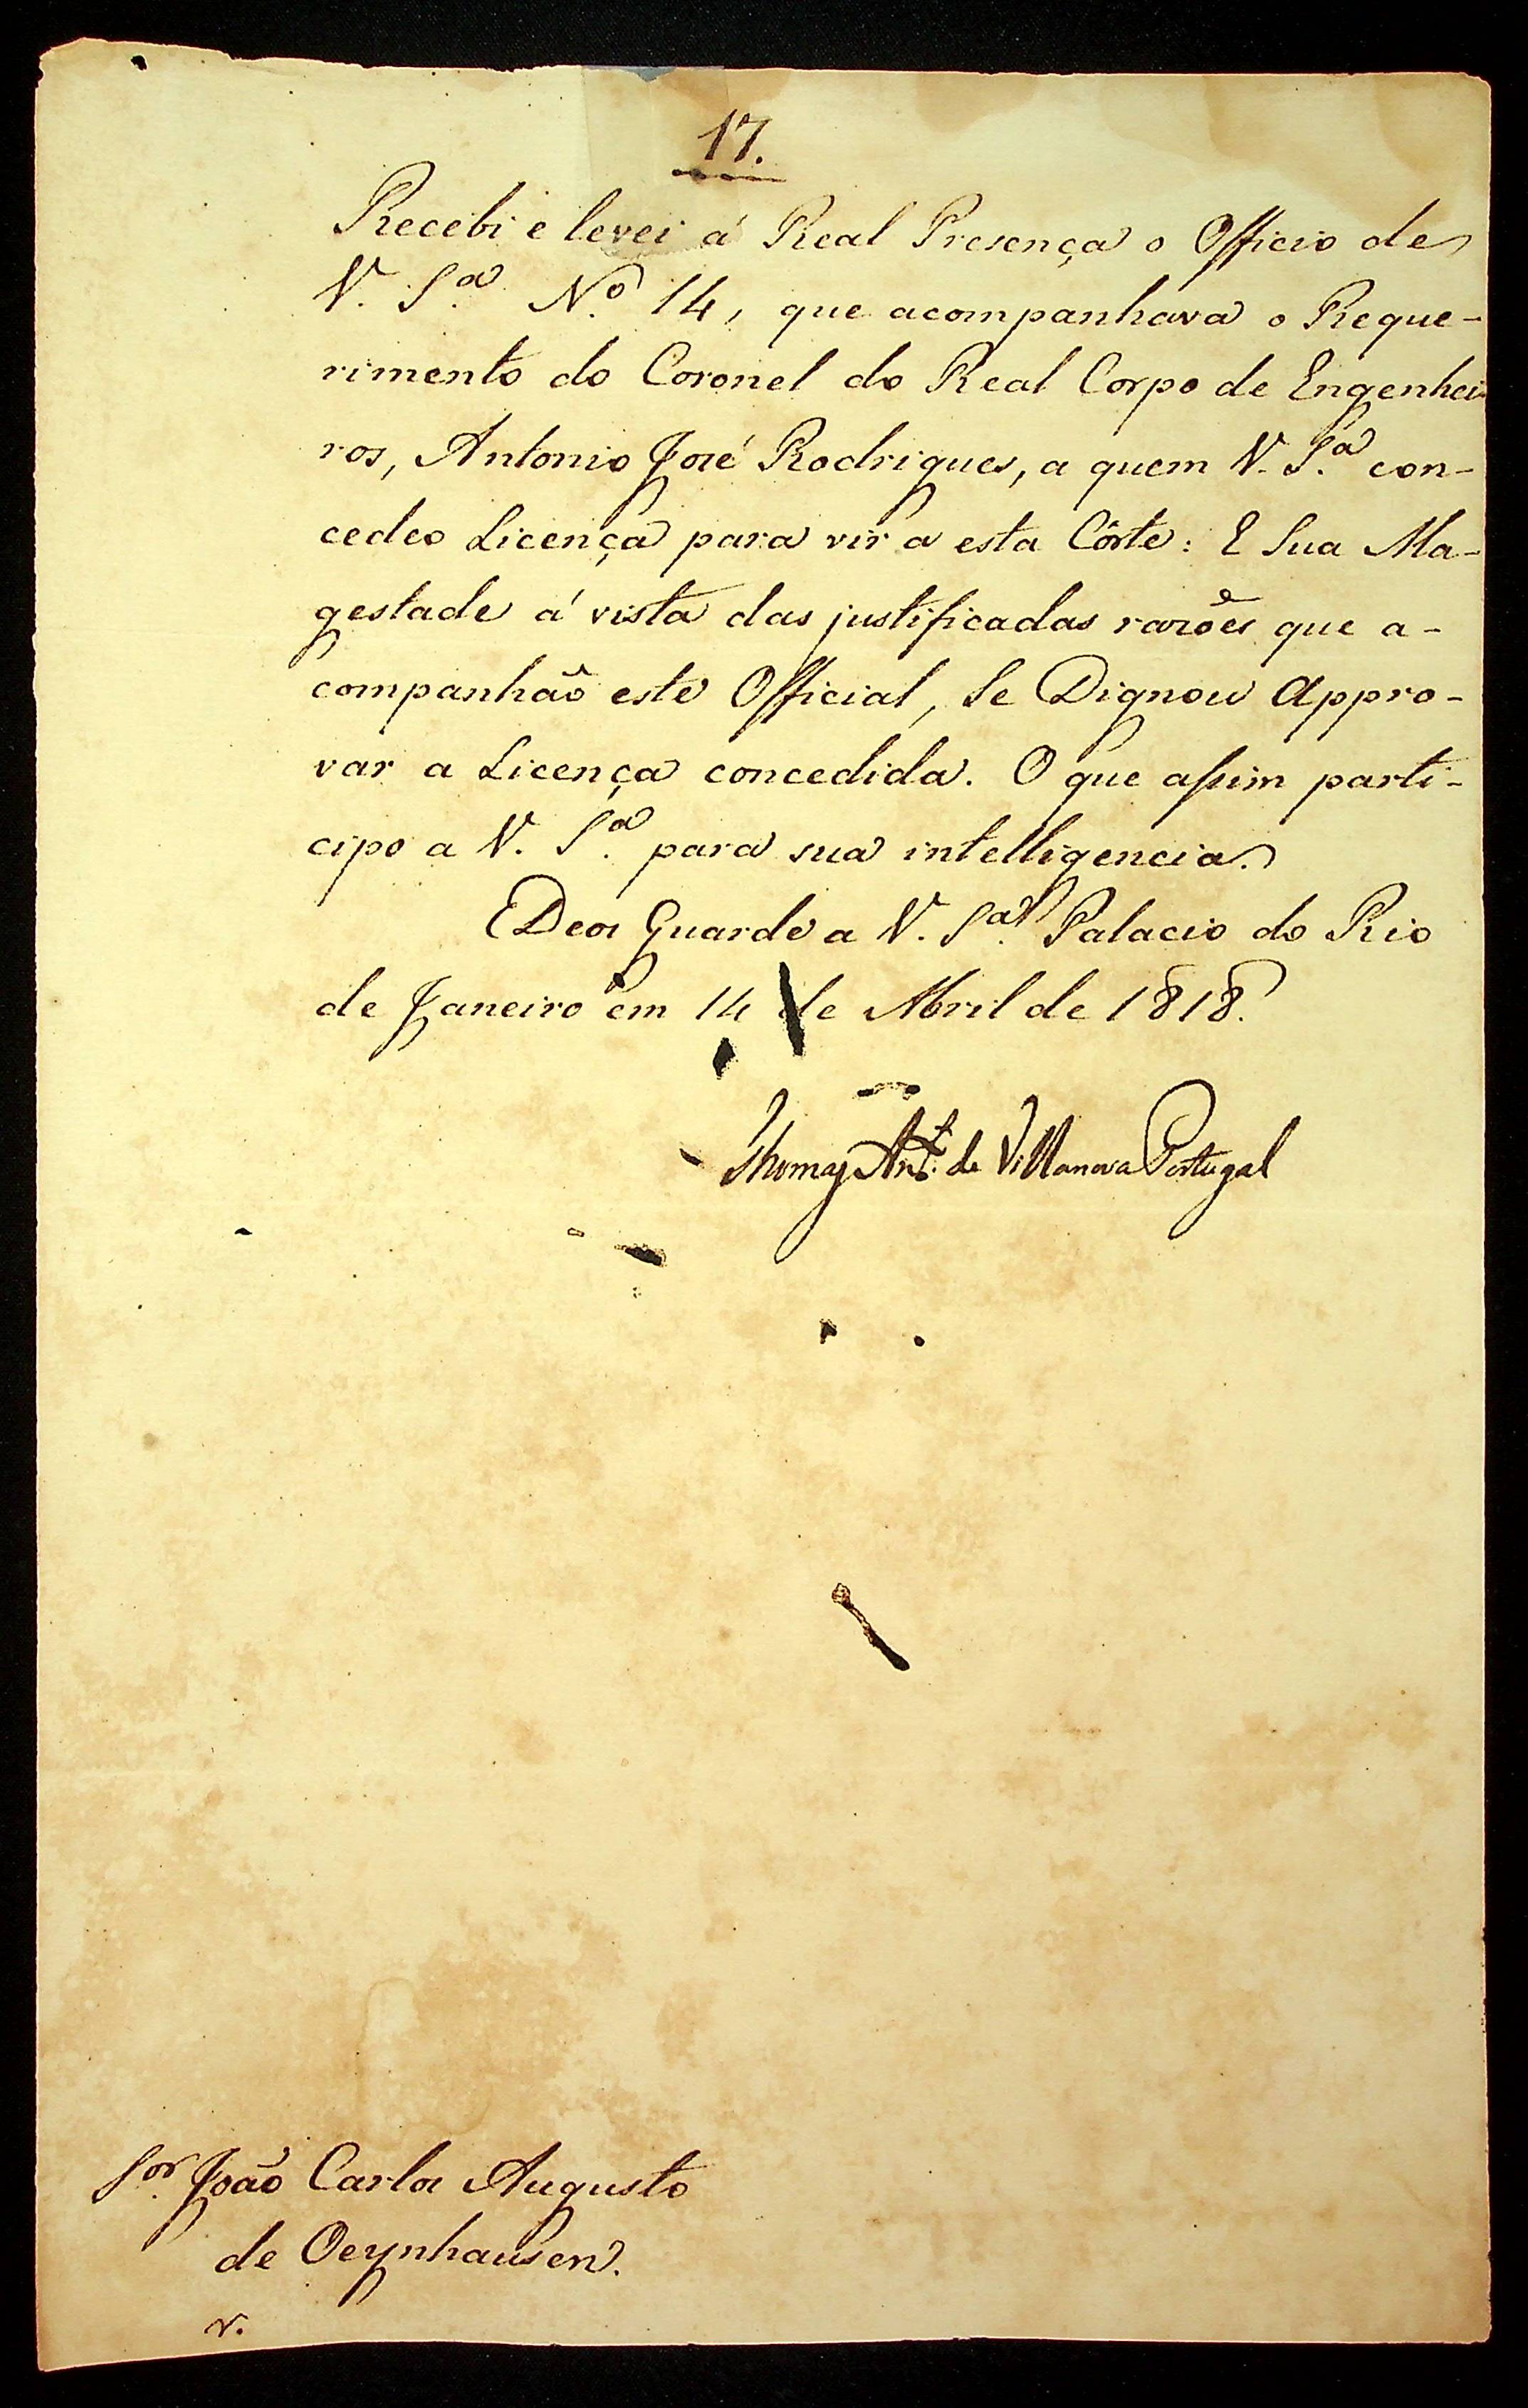 17.
Recebi e levei á Real Presença o Officio de
V. S.ª N.º 14, que acompanhava o Reque-
rimento do Coronel do Real Corpo de Engenhei-
ros, Antonio José Rodrigues, a quem V. S.ª con-
cedeo Licença para vir a esta Côrte: E Sua Ma-
gestade á vista das justificadas razões que a-
companhão este Official, Se Dignou Appro-
var a Licença concedida. O que assim parti-
cipo a V. S.ª para sua intelligencia.
Deos Guarde a V. S.ª Palacio do Rio
de Janeiro em 14 de Abril de 1818.
Thomaz Ant.º de Villanova Portugal
S.or João Carlos Augusto
de Oeynhausen.
v.